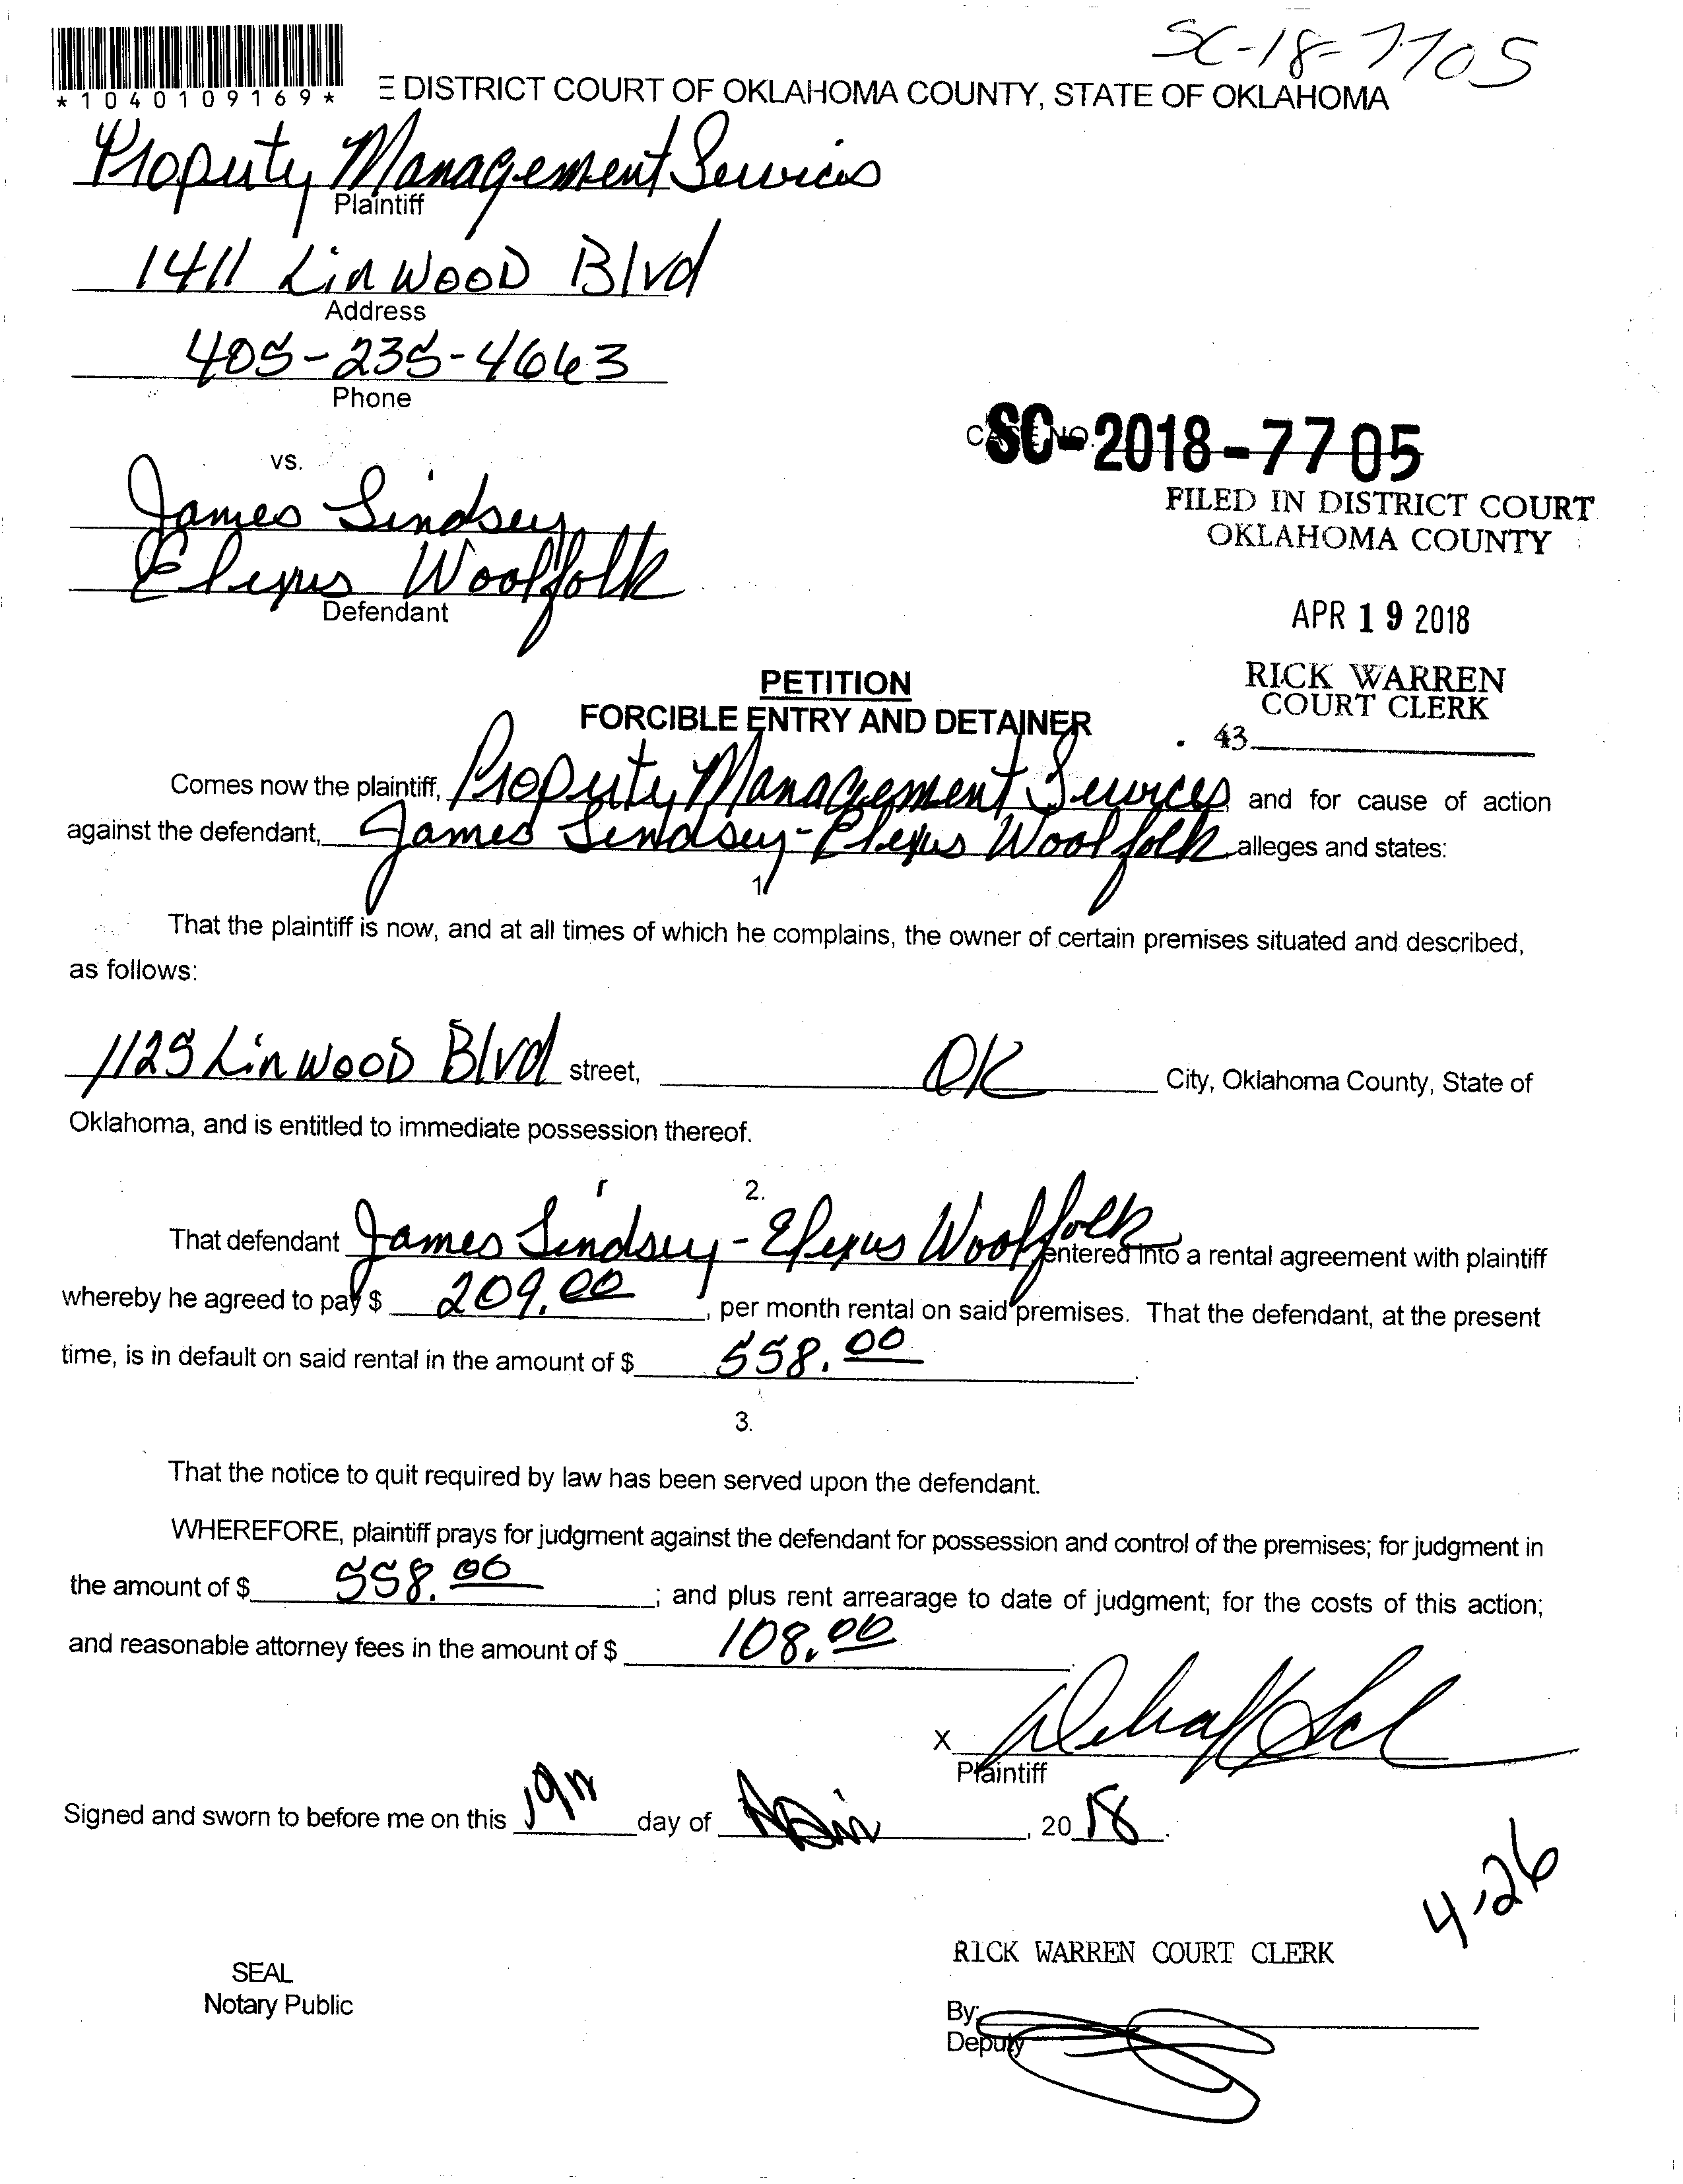 SC-18-7705
*1040109169*
E DISTRICT COURT OF OKLAHOMA COUNTY, STATE OF OKLAHOMA
Property Management Services
Plaintiff
1411 Linwood Blvd
Address
405-235-4663
Phone
CASE NO.
SC-2018-7705
vs.
FILED IN DISTRICT COURT
OKLAHOMA COUNTY
James Lindsey
Elexus Woolfolk
Defendant
APR 19 2018
RICK WARREN
COURT CLERK
43
PETITION
FORCIBLE ENTRY AND DETAINER
Comes now the plaintiff, Property Management Services and for cause of action
against the defendant, James Lindsey - Elexus Woolfolk alleges and states:
1.
That the plaintiff is now, and at all times of which he complains, the owner of certain premises situated and described,
as follows:
1125 Linwood Blvd street, OK City, Oklahoma County, State of
Oklahoma, and is entitled to immediate possession thereof.
2.
That defendant James Lindsey - Elexus Woolfolk entered into a rental agreement with plaintiff
whereby he agreed to pay $ 209.00, per month rental on said premises. That the defendant, at the present
time, is in default on said rental in the amount of $ 558.00.
3.
That the notice to quit required by law has been served upon the defendant.
WHEREFORE, plaintiff prays for judgment against the defendant for possession and control of the premises; for judgment in
the amount of $ 558.00; and plus rent arrearage to date of judgment; for the costs of this action;
and reasonable attorney fees in the amount of $ 108.00.
X
Plaintiff
Signed and sworn to before me on this 19th day of , 2018.
4-26
RICK WARREN COURT CLERK
SEAL
Notary Public
By:
Deputy